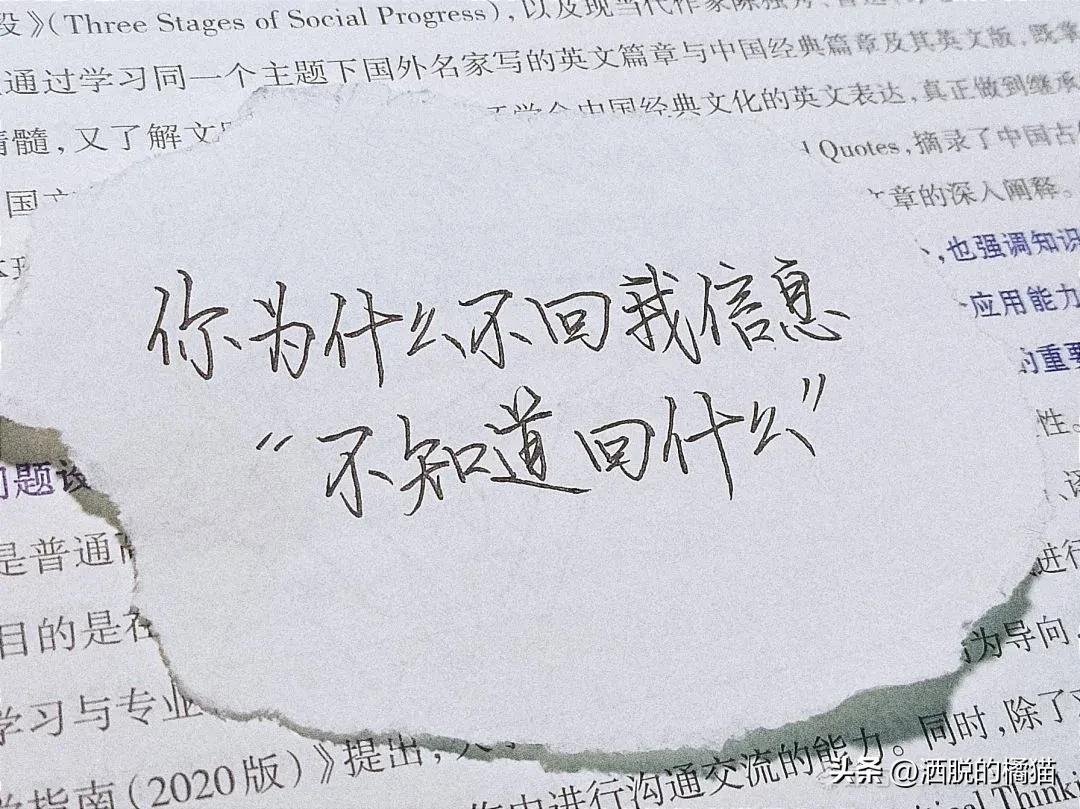 段》(Three Stages of Social Progress), 以及现当代作家陈独秀、
通过学习同一个主题下国外名家写的英文篇章与中国经典篇章及其英文版,既掌
精髓,又了解文
学会中国经典文化的英文表达,真正做到继承
Quotes,摘录了中国古
国
文章的深入阐释。
,也强调知识
应用能力
的重要
性。
你为什么不回我信息
“不知道回什么”
问题设
是普通
进行
目的是在
为导向,
学习与专业
学指南(2020版)》提出,
中进行沟通交流的能力。同时,除了
头条 @洒脱的橘猫